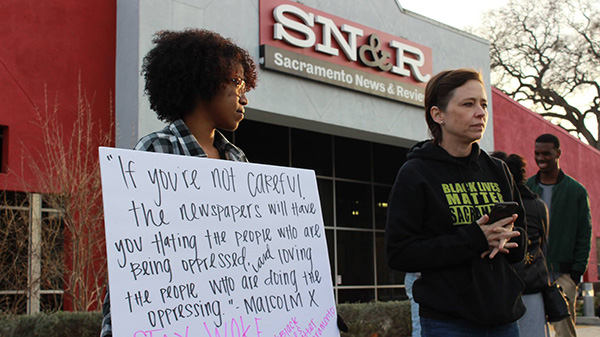 SN&R
Sacramento News & Review
"If you're not careful,
the newspapers will have
you hating the people who are
being oppressed, and loving
the people who are doing the
oppressing." - Malcolm X
STAY WOKE
Black
Lives
Matter
Sacramento
BLACK LIVES
MATTER
SACRAM